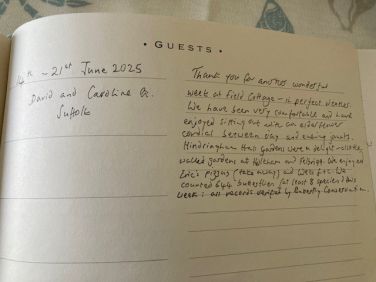 • GUESTS •
14th - 21st June 2025
David and Caroline G.
Suffolk
Thank you for another wonderful
week at Field Cottage - in perfect weather.
We have been very comfortable and have
enjoyed sitting out with an elderflower
cordial between day and evening jaunts.
Hindringham Hall gardens were a delight -
walled gardens at Holkham and Felbrigg. We enjoyed
Eric's pizzas (take away) and Wells F+C. We
counted 644 butterflies (at least 8 species) this
week: all records verified by Butterfly Conservation.